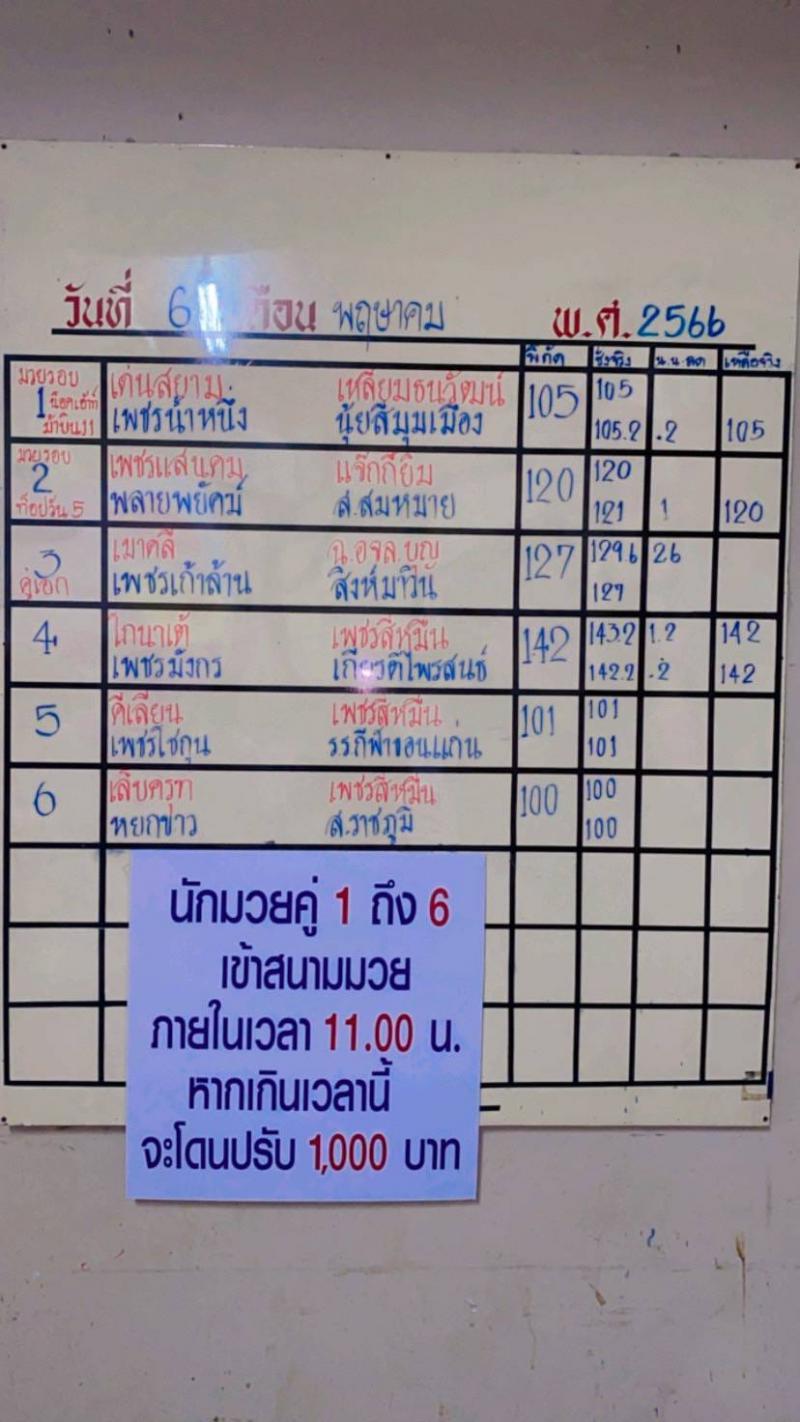 วันที่ 6 เดือน พฤษาคม พ.ศ. 2566
พิกัด ชั่งจริง น.น.ลด เหลือจริง
มวยรอบ เด่นสยาม เหลี่ยมธนวัฒน์ 105 105
1 น๊อคเอ้าท์ เพชรน้ำหนึ่ง นุ้ยสี่มุมเมือง 105.2 .2 105
ม้าบิน11
มวยรอบ เพชรแสนคม แจ๊กกี้ยิม 120 120
2 พลายพยัคฆ์ ส.สมหมาย 121 1 120
ท็อปวัน 5
3 เมาคลี ฉ.อจล.บุญ 127 129.6 26
คู่เอก เพชรเก้าล้าน สิงห์มาวิน 127
4 ไกนาเต้ เพชรสี่หมื่น 142 143.2 1.2 142
เพชรมังกร เกียรติไพรสนธ์ 142.2 .2 142
5 คีเลียน เพชรสี่หมื่น 101 101
เพชรโชกุน รรกีฬาขอนแก่น 101
6 เล็บครุฑ เพชรสี่หมื่น 100 100
หยกขาว ส.ราชภูมิ 100
นักมวยคู่ 1 ถึง 6
เข้าสนามมวย
ภายในเวลา 11.00 น.
หากเกินเวลานี้
จะโดนปรับ 1,000 บาท